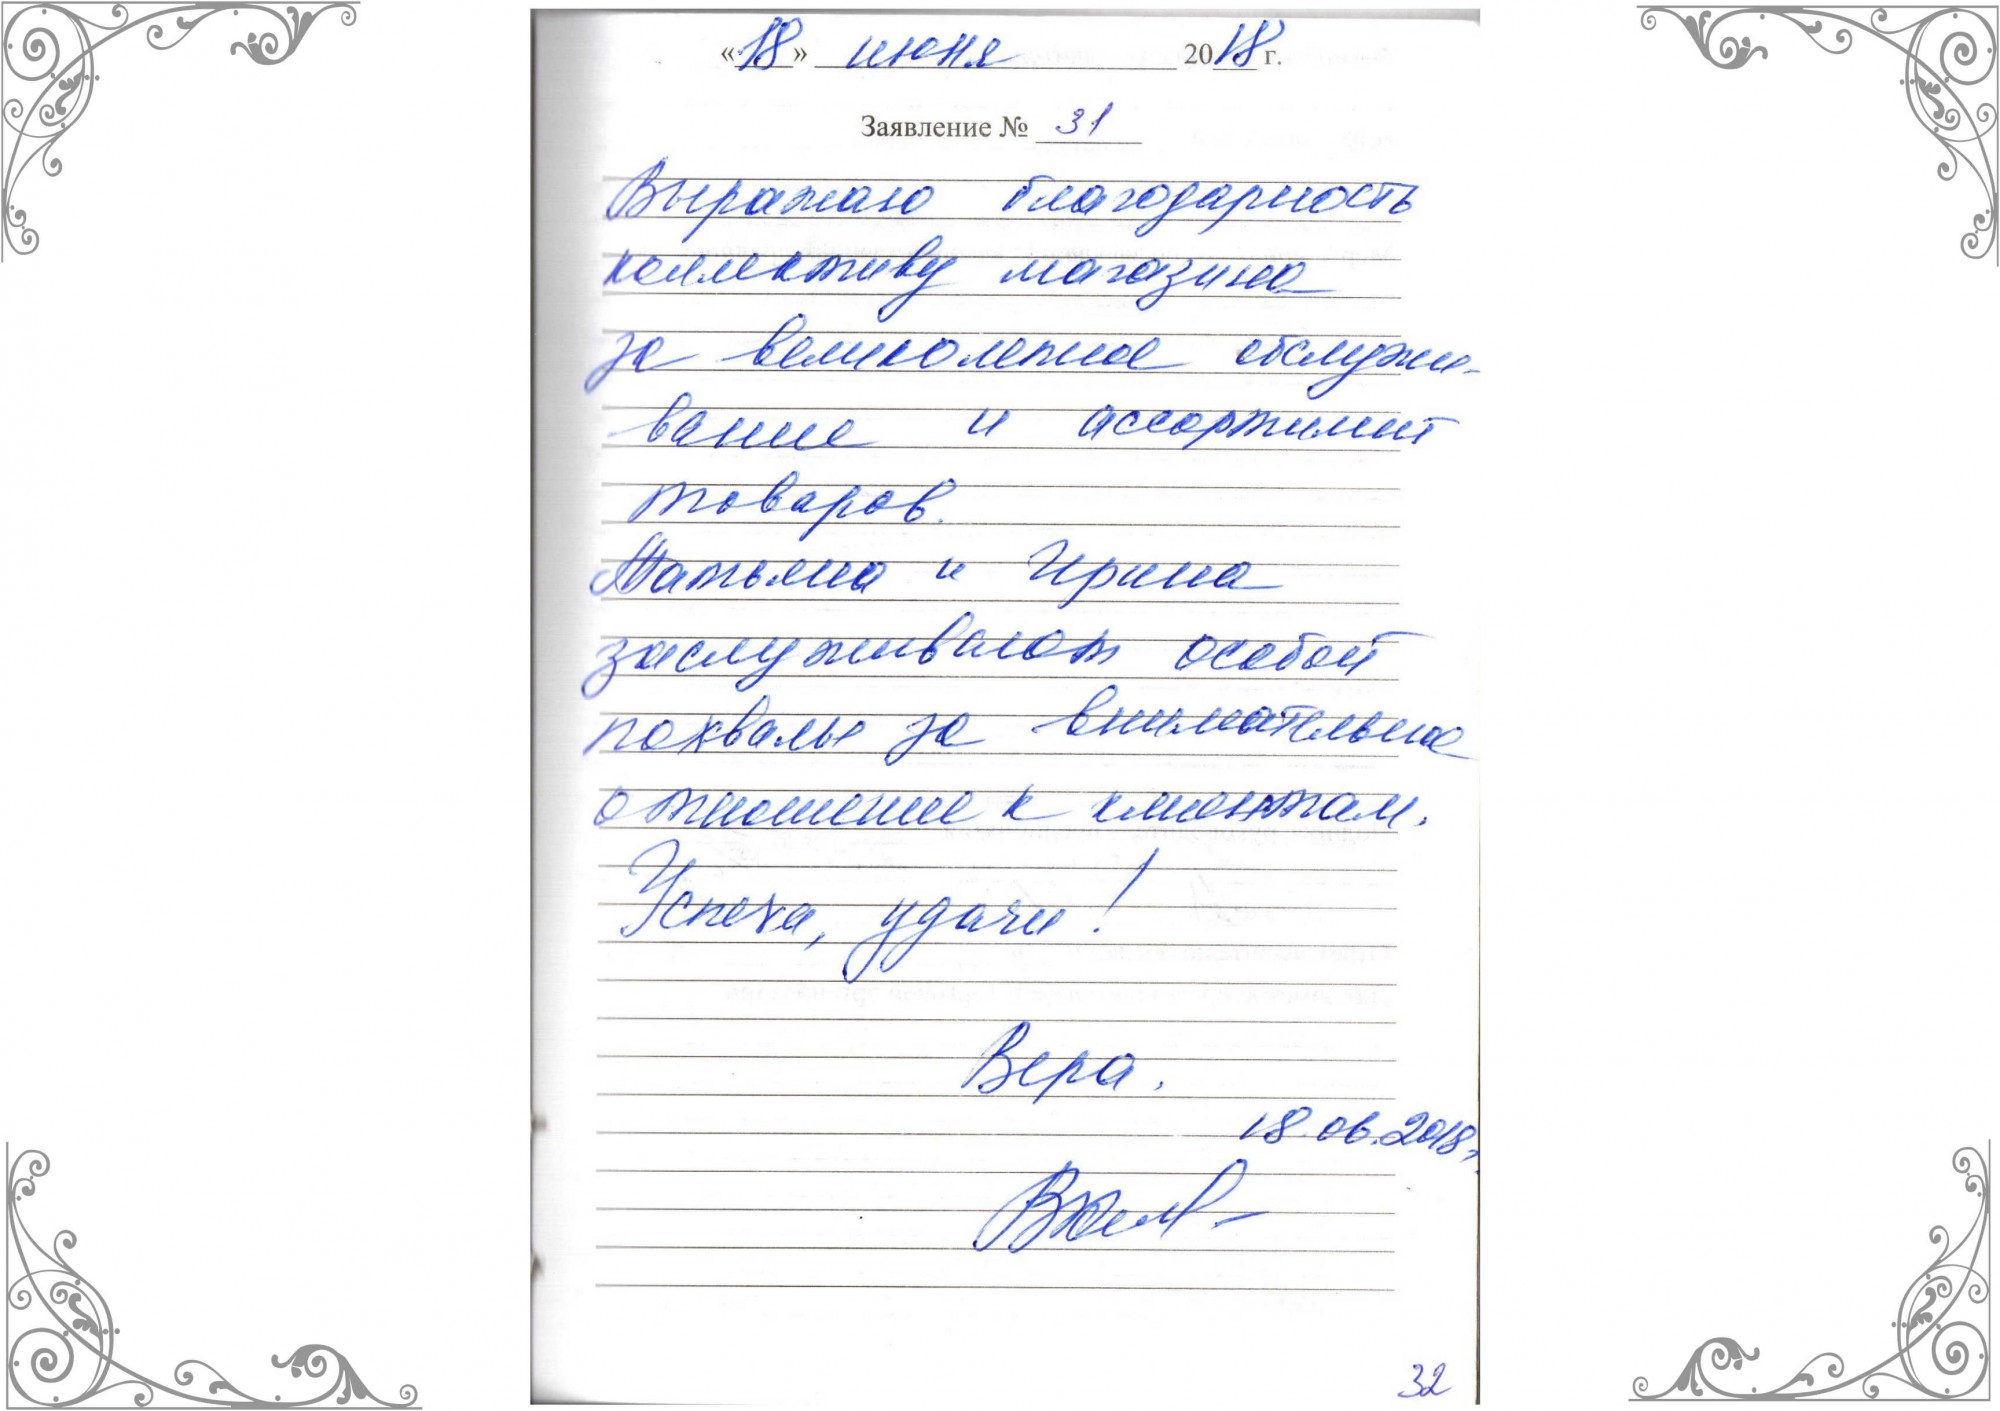 «18» июня 2018 г.
Заявление № 31
Выражаю благодарность
коллективу магазина
за великолепное обслужи-
вание и ассортимент
товаров.
Татьяна и Ирина
заслуживают особой
похвалы за внимательное
отношение к клиентам.
Успеха, удачи!
Вера.
18.06.2018г.
32